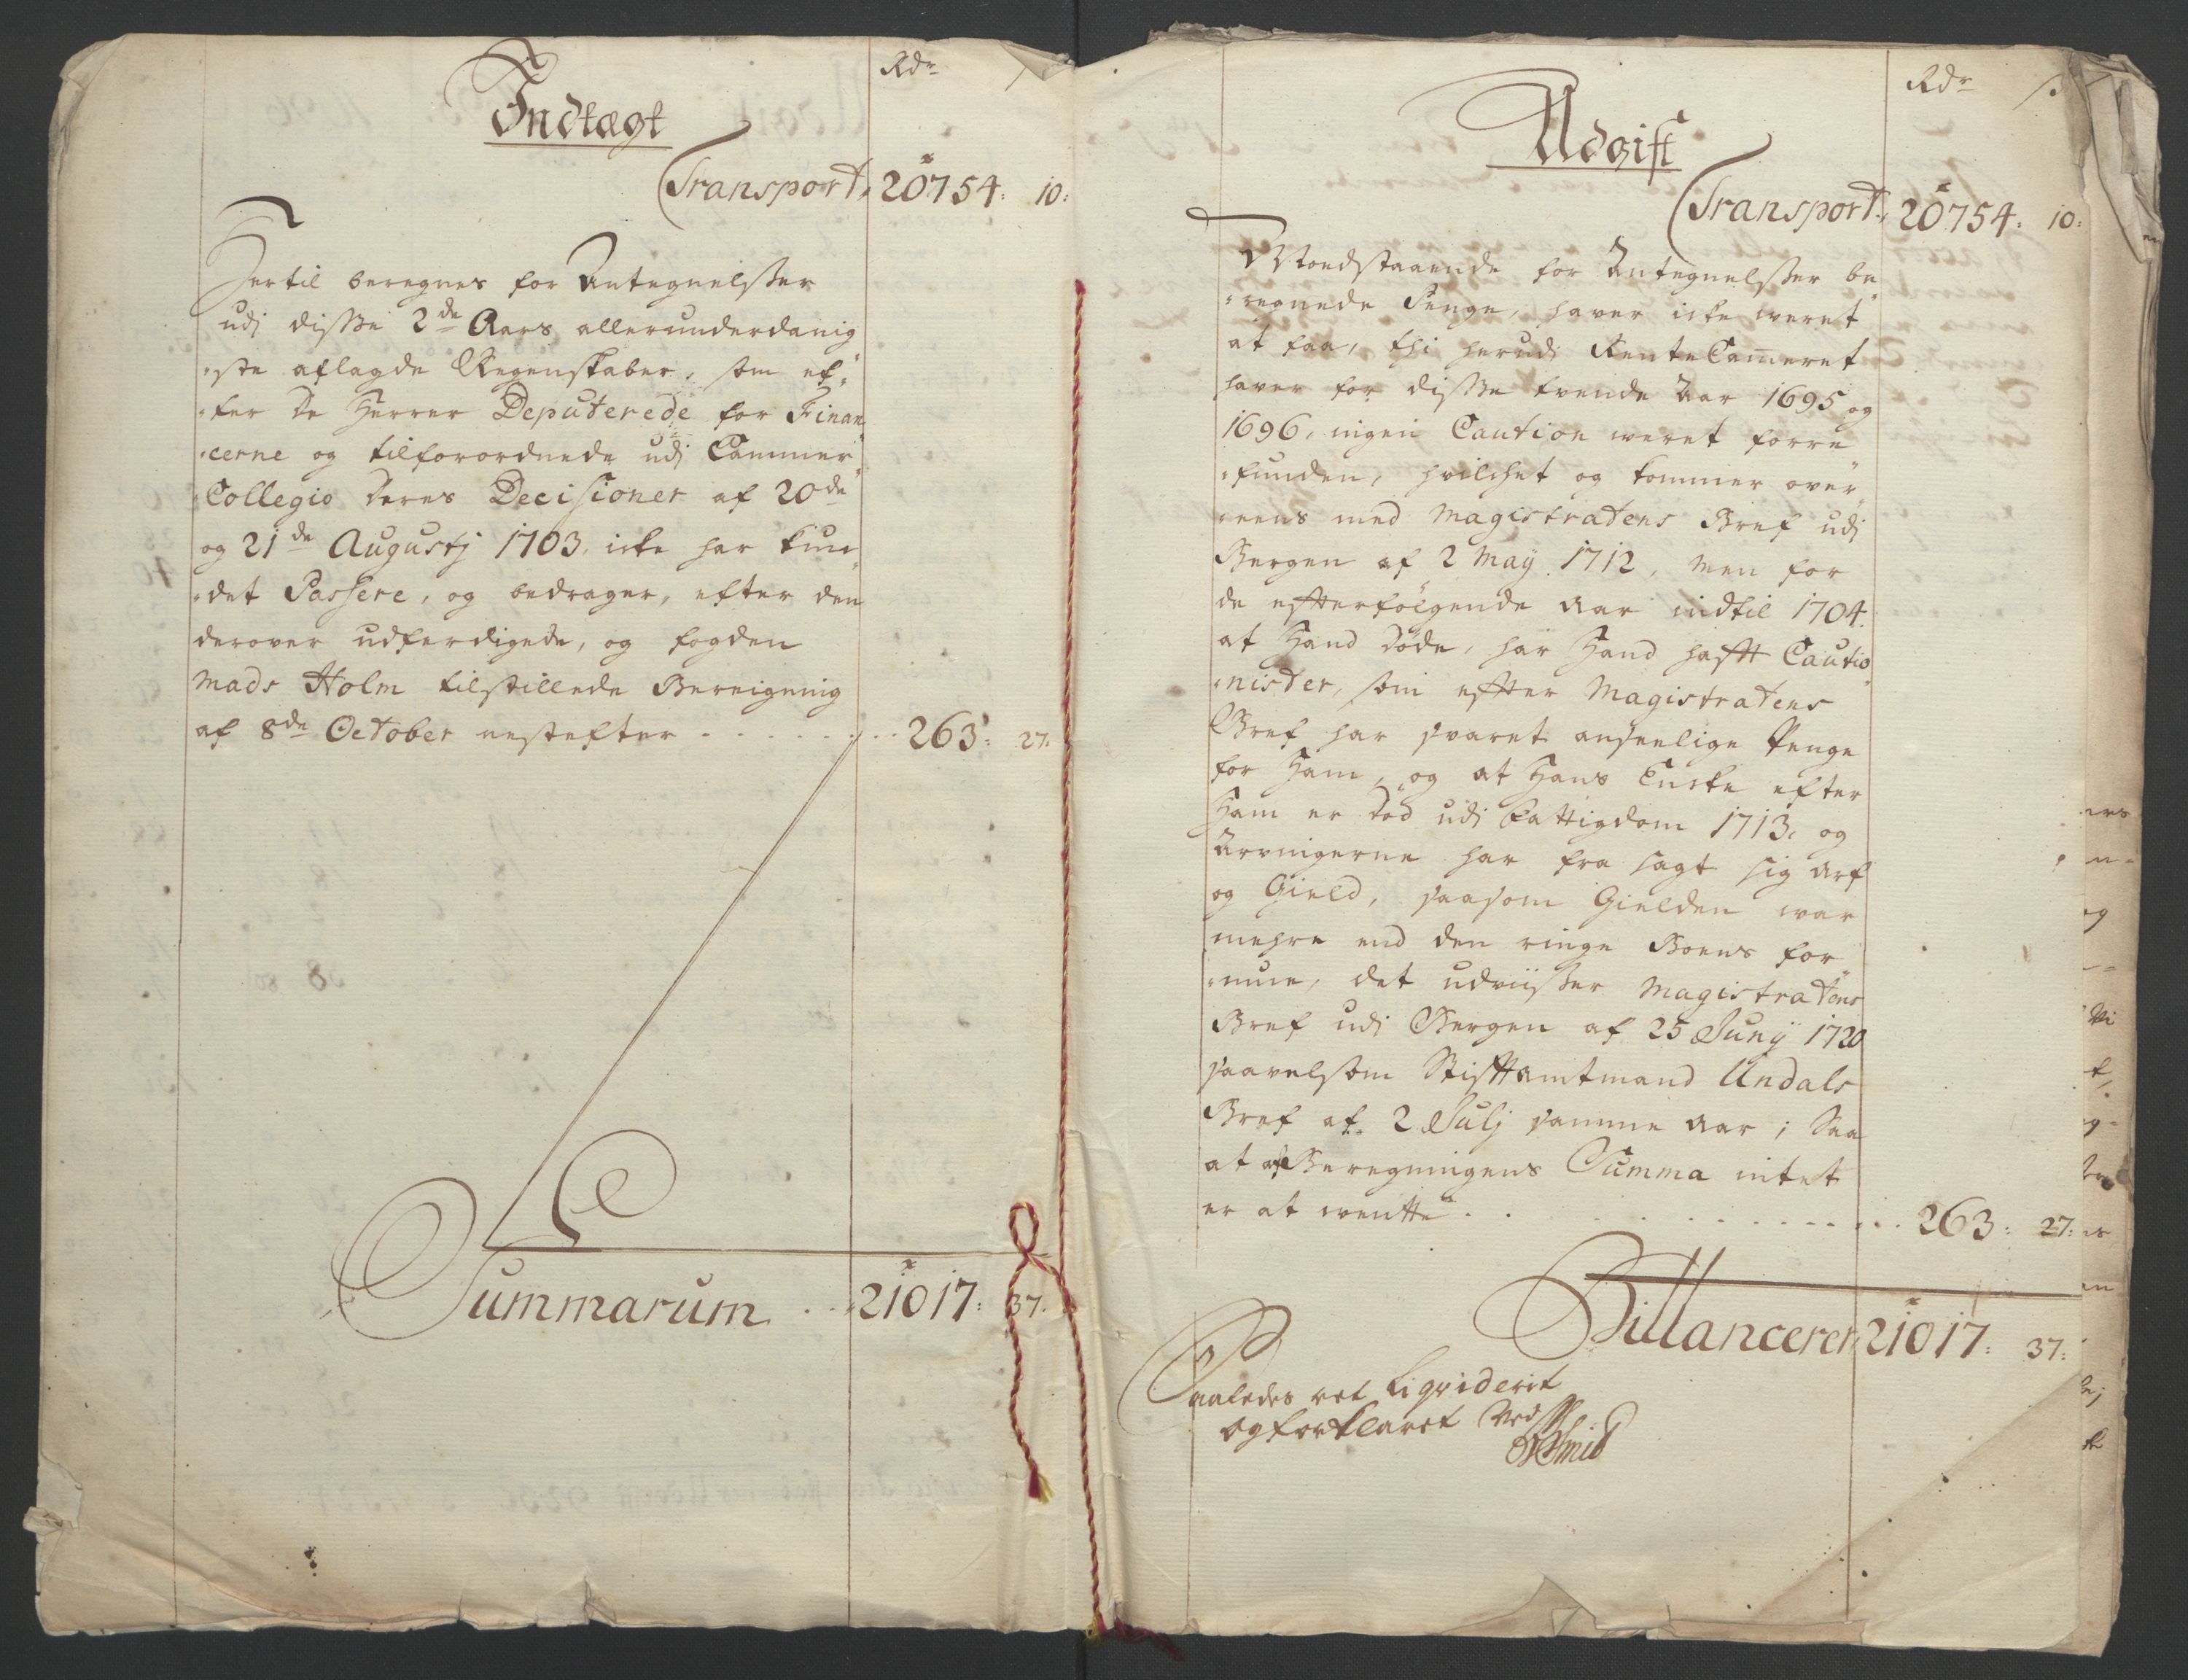 Indtægt
Rdr s
Transport, 20754: 10:
Hertil beregnes for Antegnelsser
udj disse 2de Aars allerunderdanig
ste aflagde Regenskaber, som ef
ter De Herrer Deputerede for Finan
cerne og tilforordnede udj Cammer
Collegio Deres Decisioner af 20de
og 21de Augustj 1703, icke har kun
det Passere, og bedrager, efter den
derover udferdigede, og fogden
Mads Holm tilstillede Bereigning
af 8de October nestefter - - - - - - - 263: 27.
Summarum - - - 21017: 37.
Udgift
Rdr s
Transport, 20754: 10:
Modstaaende for Antegnelsser be
regnede Penge, haver icke weret
at faa, thi herudi RenteCameret
haver for disse tvende Aar 1695 og
1696, ingen Caution weret forre
funden, hvilchet og kommer over
eens med Magistratens Bref udj
Bergen af 2 Maÿ 1712, Men for
de efterfölgende Aar indtil 1704.
at Hand döde, har Hand hafft Cautio
nister, som effter Magistratens
Bref har svaret anseelige Penge
for Ham, og at Hans Encke efter
Ham er död udj Fattigdom 1713, og
Arvingerne har fra sagt sig Arf
og Gield, saasom Gielden war
mehre end den ringe Boens for
mue, det udviisser Magistratens
Bref udi Bergen af 25 Junÿ 1720
saavelsom Stifftamtmand Undals
Bref af 2 Julj samme Aar; Saa
at af Beregningens Summa intet
er at wentte - - - - - - - - - 263: 27:
Billancerer 21017: 37:
Saaledes ret Liqviderit
og forklaret Ved
Smid